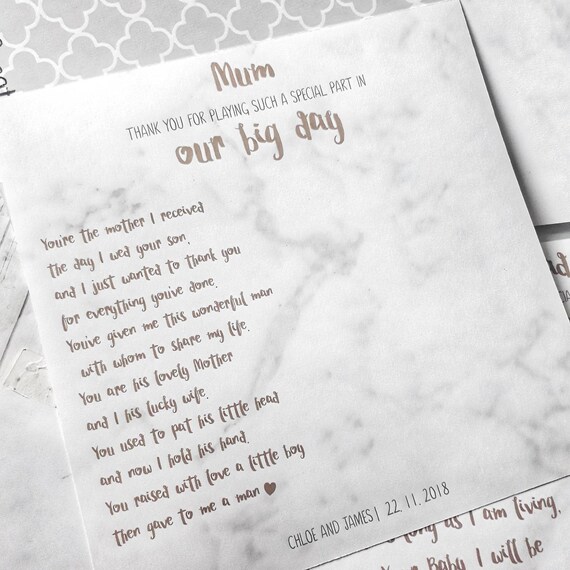 Mum
THANK YOU FOR PLAYING SUCH A SPECIAL PART IN
our big day
You're the mother I received
the day I wed your son,
and I just wanted to thank you
for everything youve done.
You've given me this wonderful man
with whom to share my life.
You are his lovely Mother
and I his lucky wife.
You used to pat his little head
and now I hold his hand.
You raised with love a little boy
then gave to me a man ♥
CHLOE AND JAMES | 22. 11. 2018
as I am living,
Baby I will be